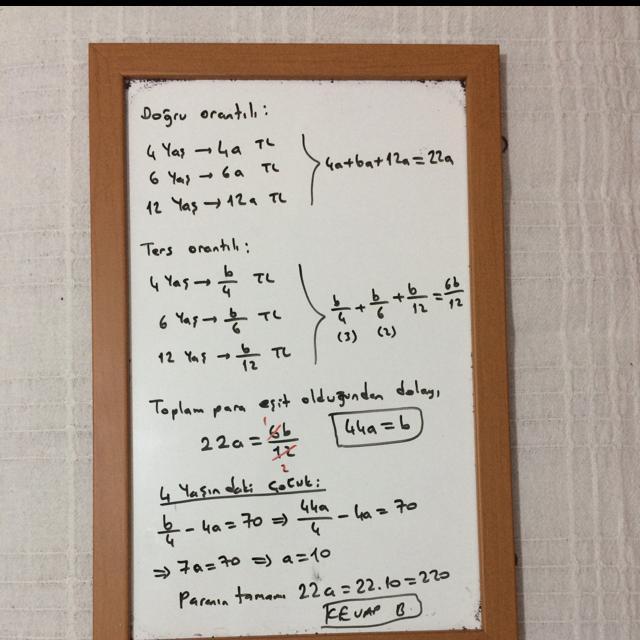 Doğru orantılı:
4 Yaş → 4a TL
6 Yaş → 6a TL
12 Yaş → 12a TL
4a+6a+12a=22a
Ters orantılı:
4 Yaş → b/4 TL
6 Yaş → b/6 TL
12 Yaş → b/12 TL
b/4 + b/6 + b/12 = 6b/12
(3) (2)
Toplam para eşit olduğundan dolayı,
22a = 6b/12
1
2
44a = b
4 Yaşındaki Çocuk:
b/4 - 4a = 70 ⇒ 44a/4 - 4a = 70
⇒ 7a = 70 ⇒ a = 10
Paranın tamamı 22a = 22.10 = 220
CEVAP B